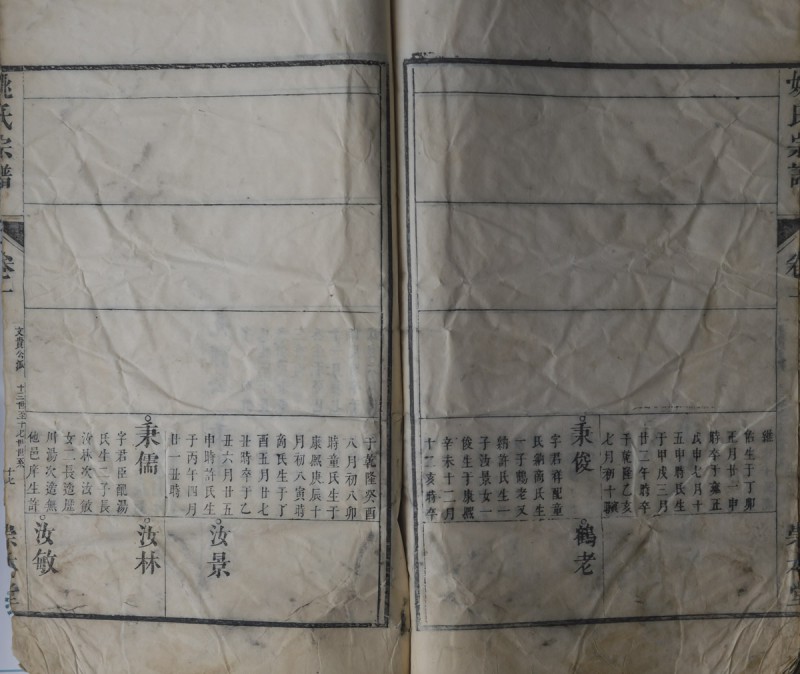 姚氏宗譜
卷一
雍
佑生于丁卯
正月廿一申
時卒于雍正
戊申七月十
五申時氏生
于甲戌三月
廿二午時卒
于乾隆乙亥
七月初十
秉俊
字君祥配童
氏納商氏生
一子鶴老又
納許氏生一
子汝景女一
俊生于康熙
辛未十二月
十二亥時卒
鶴老
于乾隆癸酉
八月初八卯
時童氏生于
康熙庚辰十
月初八寅時
商氏生于丁
酉五月廿七
丑時卒于乙
丑六月廿五
申時許氏生
于丙午四月
廿一丑時
汝景
秉儒
字君臣配馮
氏生二子長
汝林次汝敏
女二長造
川湯次造無
他邑庠生許
汝林
汝敏
姚氏宗譜
卷一
文貴公派
十三世至十七世世系
十七